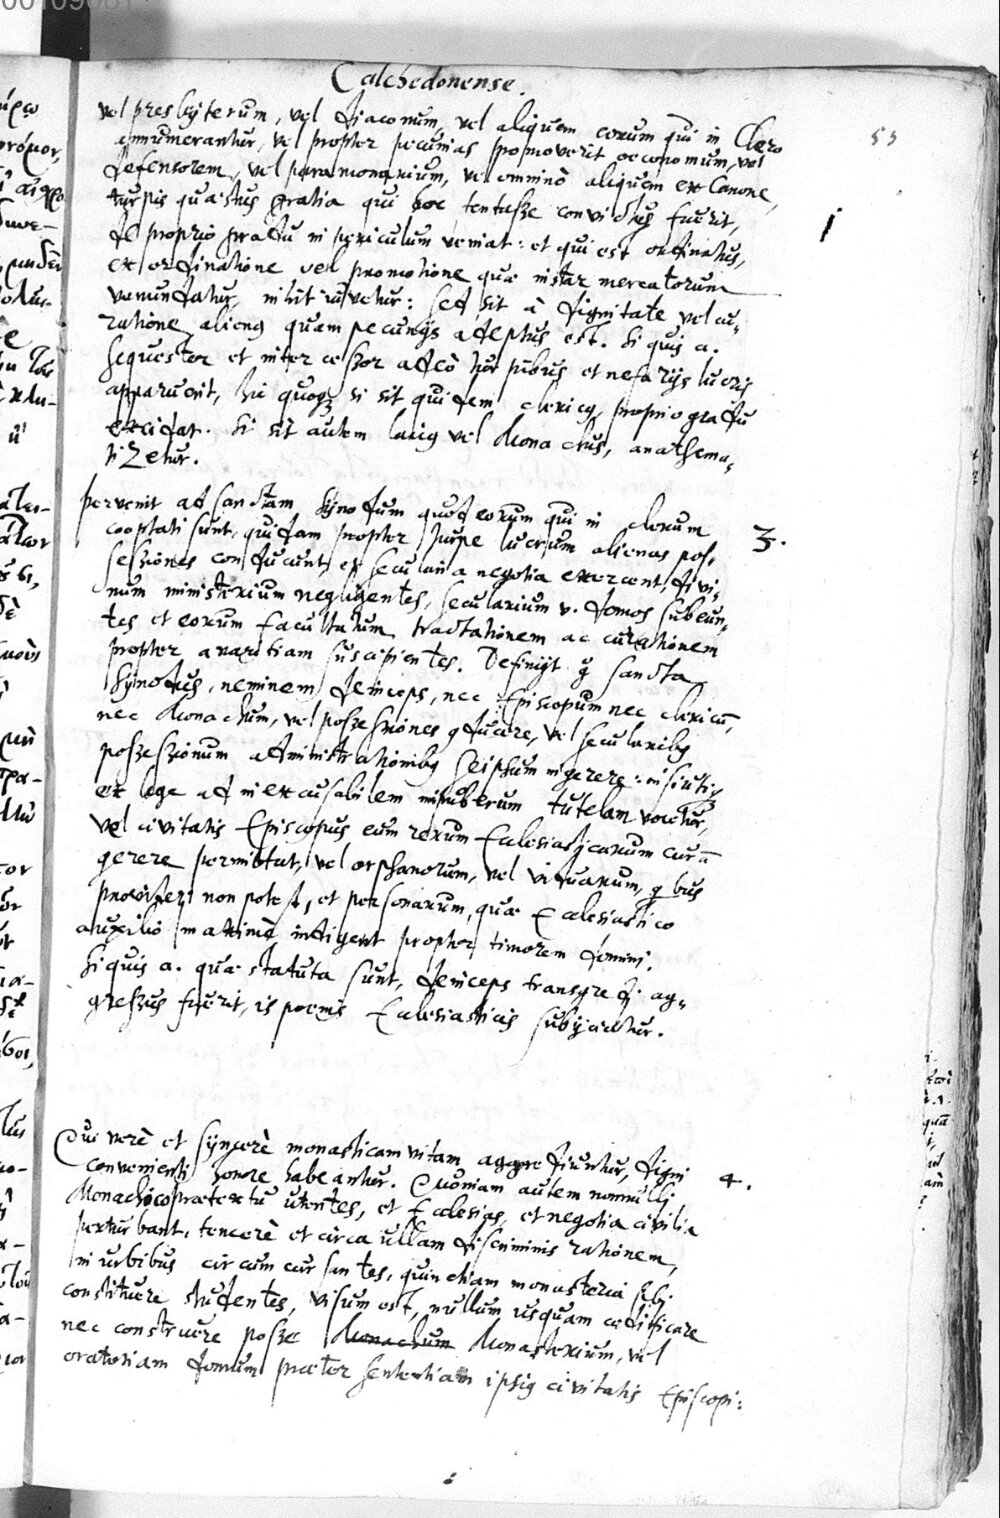 Calchedonense.
53
vel presbyterum, vel diaconum, vel aliquem eorum qui in Clero
annumerantur, vel propter pecunias promoverit oeconomum, vel
defensorem, vel paramonarium, vel omninò aliquem ex Canone,
turpis quaestus gratia qui hoc tentasse convictus fuerit,
de proprio gradu in periculum veniat: et qui est ordinatus,
ex ordinatione vel promotione quae instar mercatorum
venundatur, nihil iuvetur: sed sit à dignitate vel cu-
ratione alienus quam pecunijs adeptus est. Si quis a.
sequester et intercessor adeò turpibus et nefarijs lucris
apparuerit, hic quoque si sit quidem clericus, proprio gradu
excidat. Si sit autem laicus vel Monachus, anathema-
tizetur.
pervenit ad sanctam Synodum quod eorum qui in clerum
3.
cooptati sunt, quidam propter turpe lucrum alienas pos-
sessiones conducunt, et secularia negotia exercent, divi-
num ministerium negligentes, secularium v. domos subeun-
tes et eorum facultatum tractationem ac curationem
propter avaritiam suscipientes. Definijt g̊ sancta
Synodus, neminem deinceps, nec Episcopum nec clericũ,
nec Monachum, vel possessiones conducere, vel secularibus
possessionum administrationibus seipsum ingerere: nisi utiq̃
ex lege ad inexcusabilem impuberum tutelam vocetur,
vel civitatis Episcopus eum rerum Ecclesiasticarum curã
gerere permittat, vel orphanorum, vel viduarum, q̃bus
provideri non potest, et personarum, quae Ecclesiastico
auxilio maximè indigent propter timorem domini.
Si quis a. quae statuta sunt, deinceps transgredi ag-
gressus fuerit, is poenis Ecclesiasticis subijcietur.
Qui verè et syncerè monasticam vitam aggrediuntur, digni
4.
convenienti honore habeantur. Quoniam autem nonnulli
Monachico praetextu utentes, et Ecclesias, et negotia civilia
perturbant, temerè et circa ullam discriminis rationem,
in urbibus circumcursantes, quin etiam monasteria sibi
constituere studentes, visum est, nullum usquam aedificare
nec construere posse Monachum Monasterium, vel
oratoriam domum praeter sententiam ipsius civitatis Episcopi: